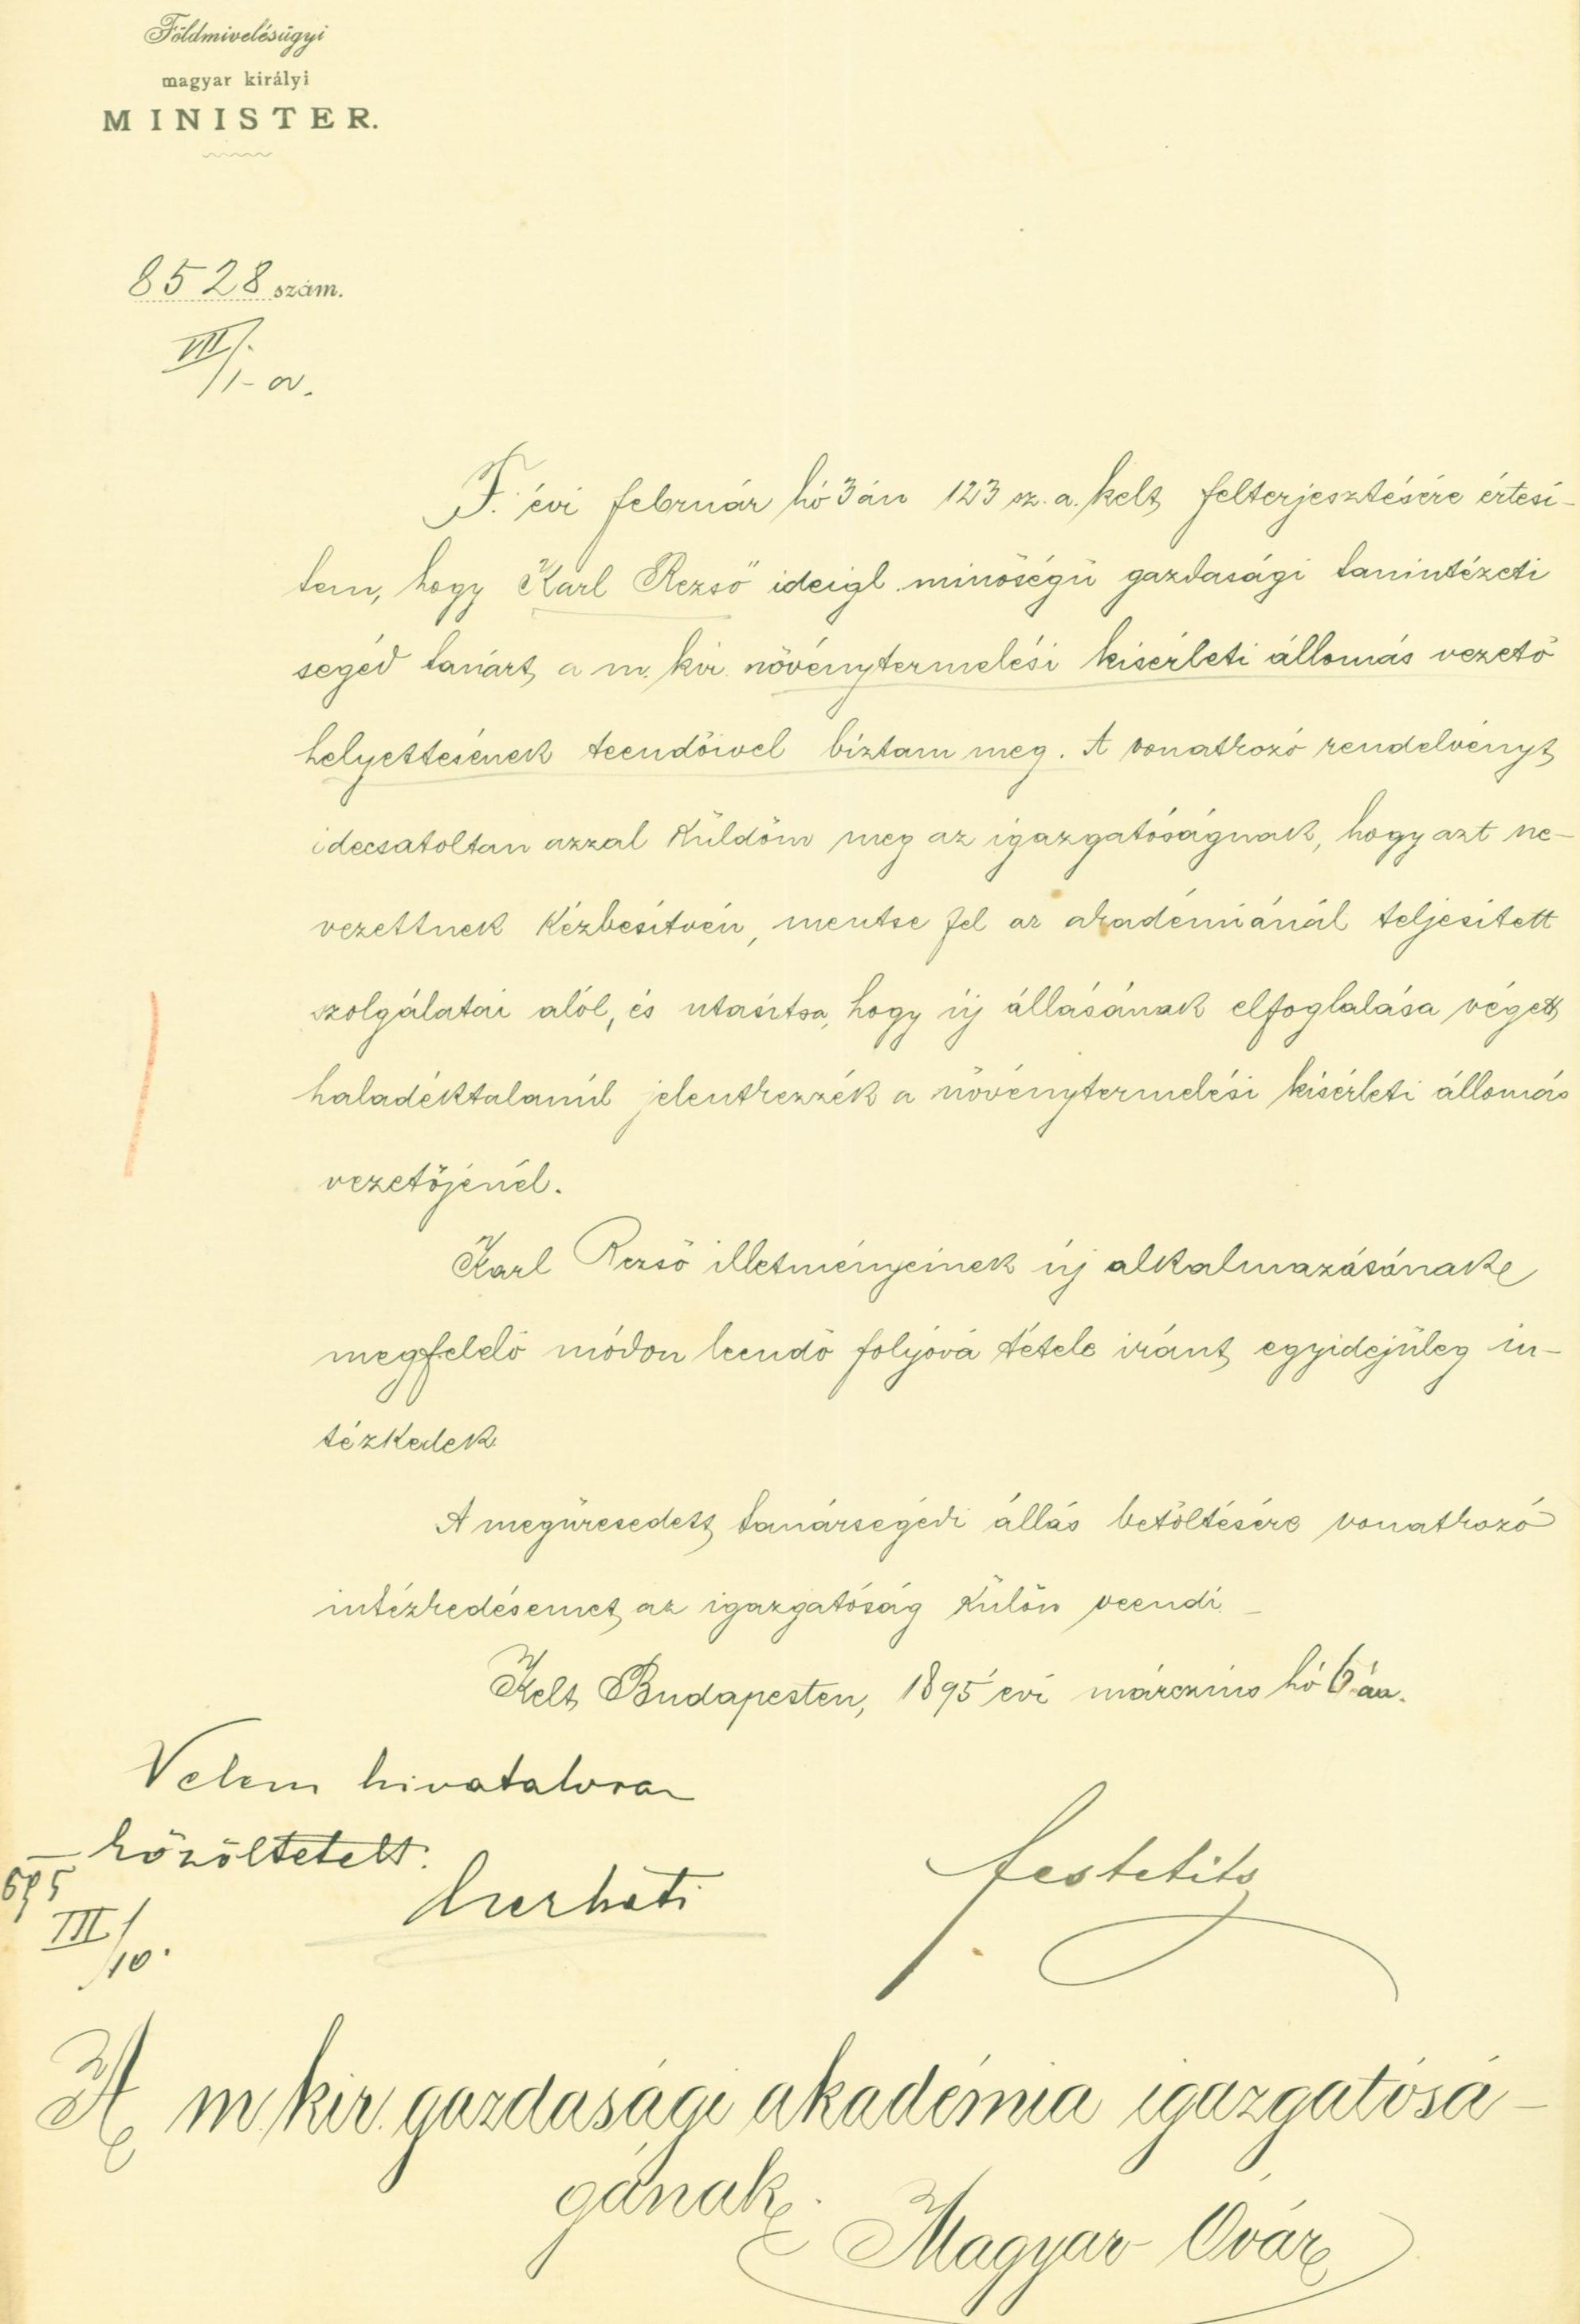 Földmivelésügyi
magyar királyi
MINISTER.
8528 szám.
VIII/1-a.
F. évi február hó 3án 123 sz. a. kelt felterjesztésére értesi-
tem, hogy Karl Rezső ideigl. minőségü gazdasági tanintézeti
segéd tanárt a m. kir. növénytermelési kisérleti állomás vezető
helyettesének teendőivel biztam meg. A vonatkozó rendelvényt
idecsatoltan azzal küldöm meg az igazgatóságnak, hogy azt ne-
vezettnek kézbesítvén, mentse fel az akadémiánál teljesített
szolgálatai alól, és utasítsa, hogy új állásának elfoglalása végett
haladéktalanúl jelentkezzék a növénytermelési kisérleti állomás
vezetőjénél.
Karl Rezső illetményeinek új alkalmazásának
megfelelő módon leendő folyóvá tétele iránt egyidejüleg in-
tézkedek
A megüresedett tanársegédi állás betöltésére vonatkozó
intézkedésemet az igazgatóság külön veendi.
Kelt Budapesten, 1895 évi márczius hó 6án.
Velem hivatalosan
közöltetett.
895
III/10.
Cserháti
festetits
A m. kir. gazdasági akadémia igazgatósá-
gának.
Magyar Óvár